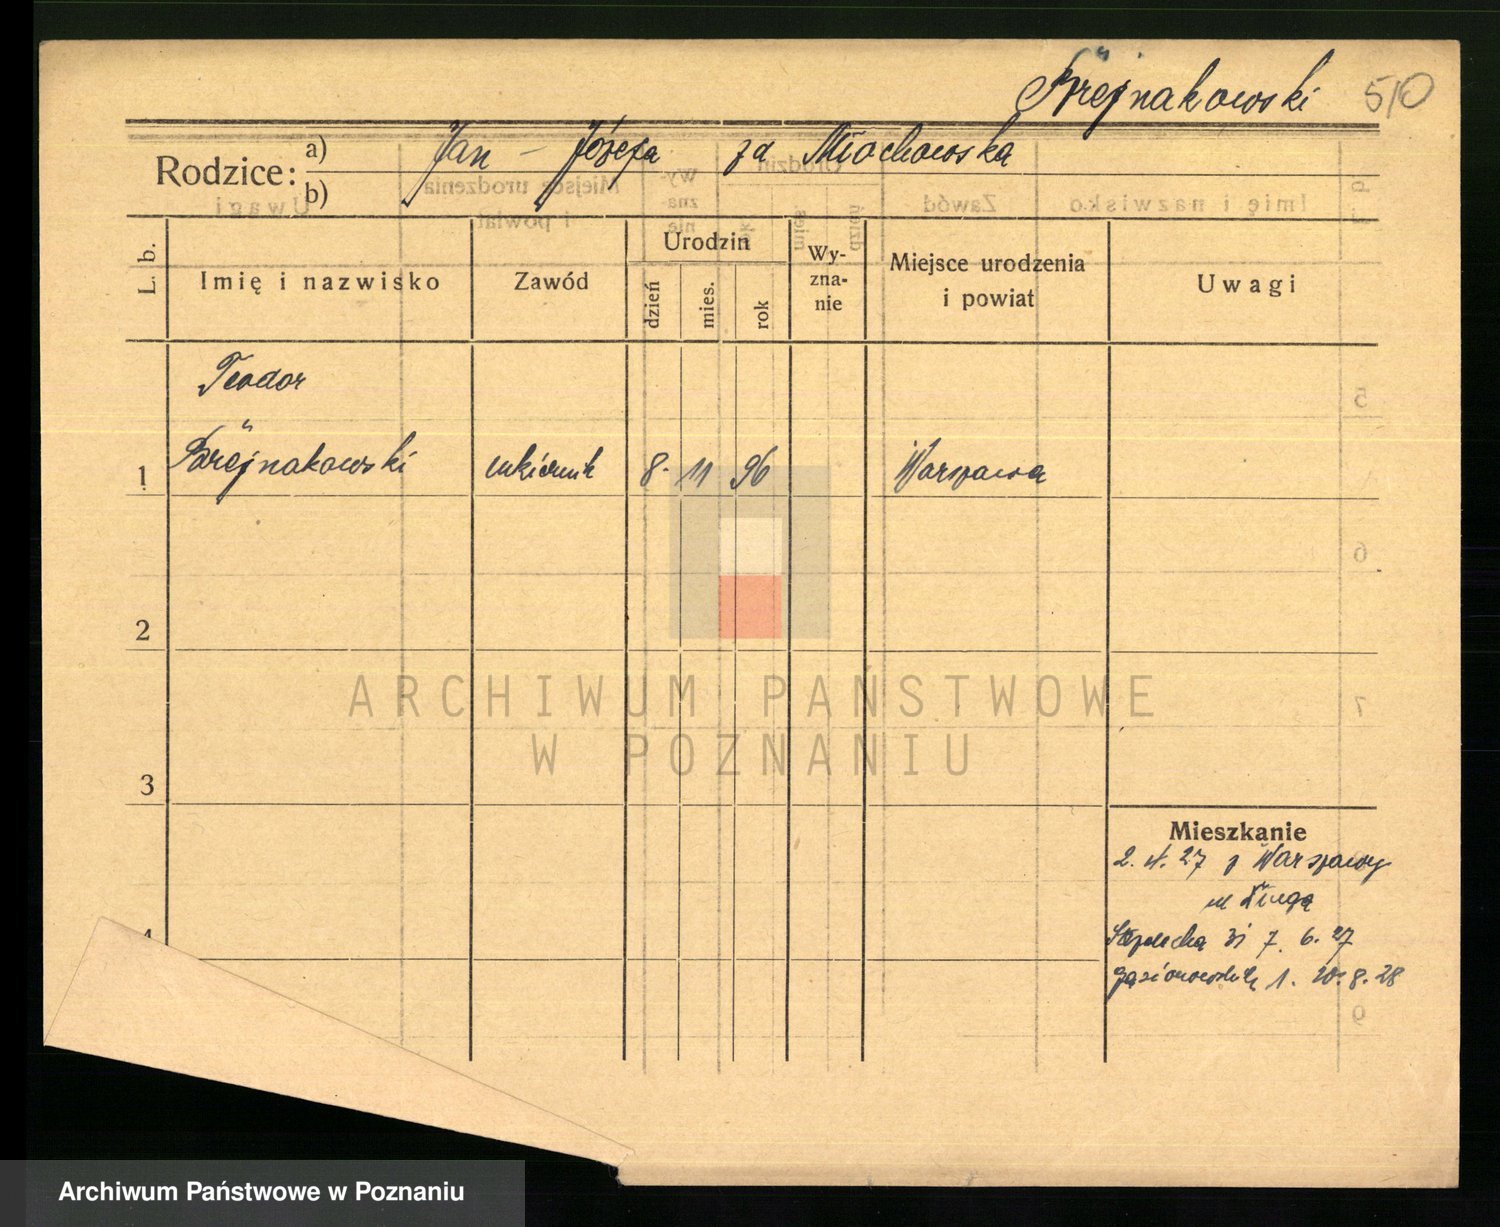 Brejnakowski 510
Rodzice: a) Jan – Józefa zd Młochowska
b)
L. b. Imię i nazwisko Zawód Urodzin dzień mies. rok Wyznanie Miejsce urodzenia i powiat Uwagi
Teodor
1 Brejnakowski cukiernik 8. 11 96 Warszawa
2
3
Mieszkanie
2. 4. 27 z Warszawy
ul
4
31 7. 6. 27
1. 20. 8. 28
ARCHIWUM PAŃSTWOWE
W POZNANIU
Archiwum Państwowe w Poznaniu